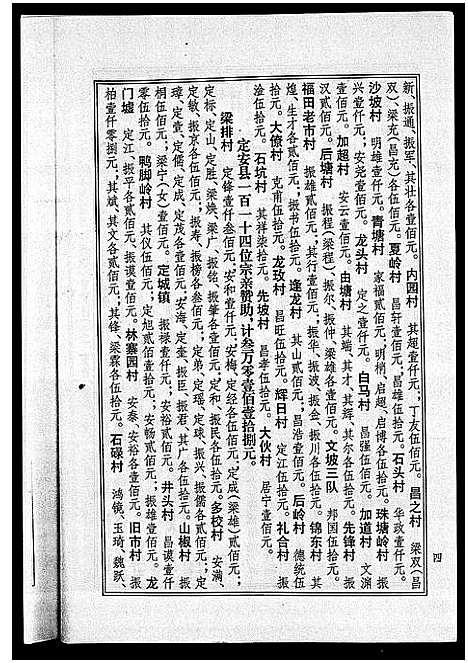 新、振通、振军、其壮各壹佰元。内园村　其超壹仟元；丁友伍佰元。昌之村　梁双（昌
双）、梁充（昌充）各伍佰元。夏岭村　昌轩壹佰元；昌雄伍拾元。石头村　华政壹仟元。
沙坡村　明雄壹仟元。青塘村　家福贰佰元；明梢、启超、启博各伍拾元。珠塘岭村　振
兴壹仟元；安尧壹佰元。龙头村　定之壹仟元。白马村　昌强伍佰元。加道村　文演
壹佰元。加超村　安云壹佰元。由塘村　其端、其才、其辉、其尔各壹佰元。先锋村　其
汉贰佰元。后塘村　振程（梁程）、振尔、振仲、梁雄各壹佰元。文坡三队　邦国伍拾元。
福田老市村　振雄贰佰元；其行壹佰元；振华、振波、振金、振川各伍拾元。锦东村　其
煌、生才各贰佰元；振书伍拾元。逢龙村　其山贰佰元；昌浩壹佰元。后岭村　德统伍
拾元。大僚村　克甫伍拾元。龙玫村　昌旺伍拾元。辉日村　定江伍拾元。礼合村　振
淦伍拾元。石坑村　其祥柒拾元。先坡村　昌孝伍拾元。大伙村　居宁壹佰元。
定安县一百一十四位宗亲赞助，计叁万零壹佰壹拾捌元。
梁排村　定锋壹仟叁佰元；安和壹仟元；安梅、定经各伍佰元；定成（梁雄）贰佰元；
定标、定山、定胜、梁焕、梁广、振铭、振肇各壹佰元；定和、振民各伍拾元。多校村　安满、
定敏、振京各伍佰元；振寿、振榜各叁佰元；定弟、定瑶、定球、振兴、振儒各贰佰元；定
璋、定壹、定儒、定成、定茂各壹佰元；安海、定奎、振臣、振君、其广各伍拾元。山椒村　振
桐伍佰元；梁宁（女）壹佰元。定城镇　振禄壹仟元；安裕贰佰元。井头村　昌谟壹仟
零伍拾元。鸭脚岭村　其仪伍佰元；定旭贰佰壹拾元；安畅贰佰元；振雄壹佰元。龙
门墟　定江、振平各贰佰元、振谟壹佰元。林寨园村　安泰、安裕各壹佰元。旧市村　振
柏壹仟零捌元；其斌、其文各贰佰元；其锋、梁霖各伍拾元。石碌村　鸿镜、玉琦、魏跃、
四